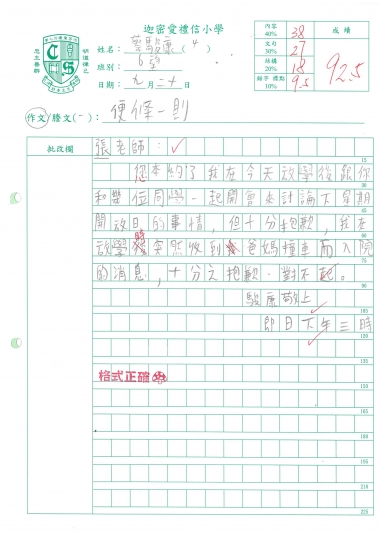 迦密愛禮信小學
姓名：蔡駿康（4）
班別：6望
日期：九月二十日
內容 40% 38
文句 30% 27
結構 20% 18
錯字 標點 10% 9.5
成績
92.5
作文/謄文(一)：便條一則
批改欄
張老師：
您本約了我在今天放學後跟你
15
和幾位同學一起開會來討論下星期
30
開放日的事情，但十分抱歉，我在
45
放學時突然收到爸媽撞車而入院
的消息，十分之抱歉，對不起。
駿康敬上
90
即日下午三時
105
120
格式正確
135
150
165
180
195
210
225